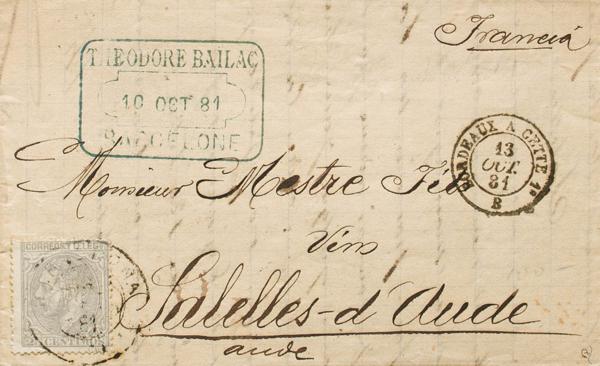 Francia
THEODORE BAILAC
10 OCT 81
BARCELONE
BORDEAUX A CETTE 1º
13
OCT.
81
B
Monsieur Mestre Fils
Vins
Salelles-d'Aude
aude
CORREOS Y TELEGS
81
25 CENTIMOS